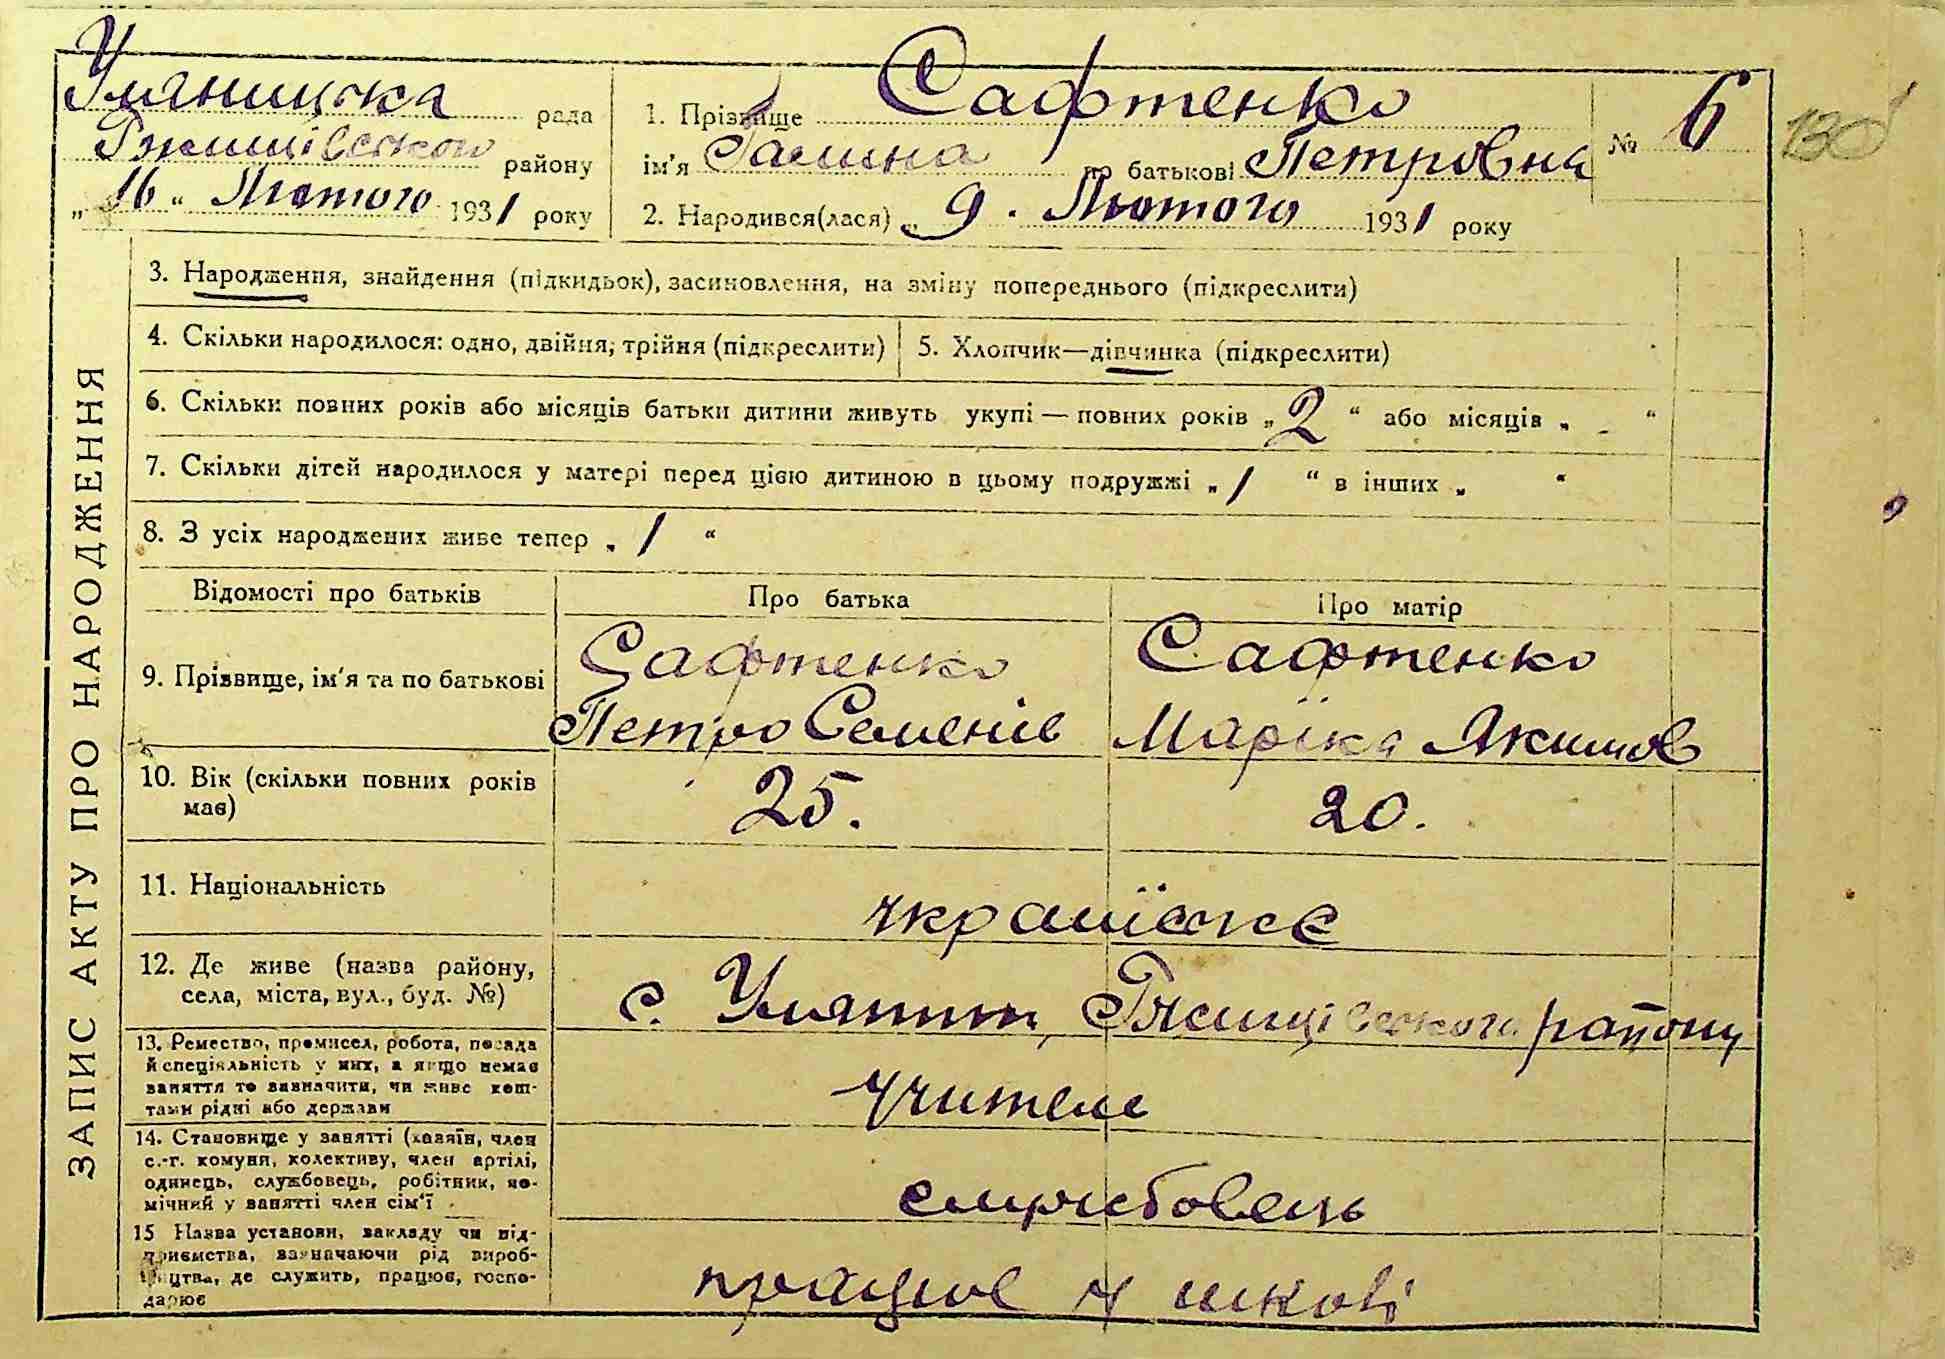 Уляницька рада
Ржищівського району
„16“ Лютого 1931 року
1. Прізвище Сафтенко
ім'я Галина по батькові Петровна
2. Народився(лася) „9. Лютого 1931 року
№ 6
130
3. Народження, знайдення (підкидьок), засиновлення, на зміну попереднього (підкреслити)
4. Скільки народилося: одно, двійня, трійня (підкреслити)
5. Хлопчик—дівчинка (підкреслити)
6. Скільки повних років або місяців батьки дитини живуть укупі — повних років „2“ або місяців „-“
7. Скільки дітей народилося у матері перед цією дитиною в цьому подружжі „1“ в інших „ “
8. З усіх народжених живе тепер „1“
ЗАПИС АКТУ ПРО НАРОДЖЕННЯ
Відомості про батьків
Про батька
Про матір
9. Прізвище, ім'я та по батькові
Сафтенко
Петро Семенів
Сафтенко
Маріка Якимов
10. Вік (скільки повних років
має)
25.
20.
11. Національність
українське
12. Де живе (назва району,
села, міста, вул., буд. №)
с. Уляники, Ржищівського району
13. Ремество, промисел, робота, посада
й спеціяльність у них, а якщо немає
заняття то зазначити, чи живе кош-
тами рідні або держави
учителе
14. Становище у занятті (хазяїн, член
с.-г. комуни, колективу, член артілі,
одинець, службовець, робітник, по-
мічний у занятті член сім'ї
службовець
15 Назва установи, закладу чи під-
приємства, зазначаючи рід вироб-
ництва, де служить, працює, госпо-
дарює
працює у школі